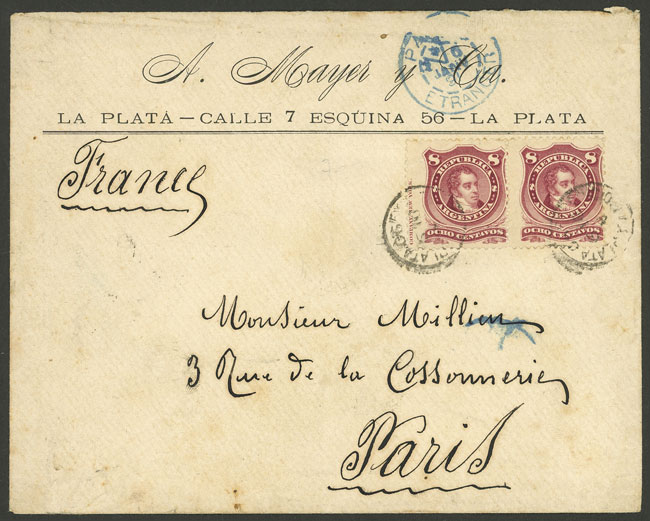 A. Mayer y Ca.
ETRANGER
LA PLATA — CALLE 7 ESQÜINA 56 — LA PLATA
France
8 8
REPUBLICA
ARGENTINA
OCHO CENTAVOS
8 8
REPUBLICA
ARGENTINA
OCHO CENTAVOS
LA PLATA
Monsieur Millien
3 Rue de la Cossonnerie
Paris